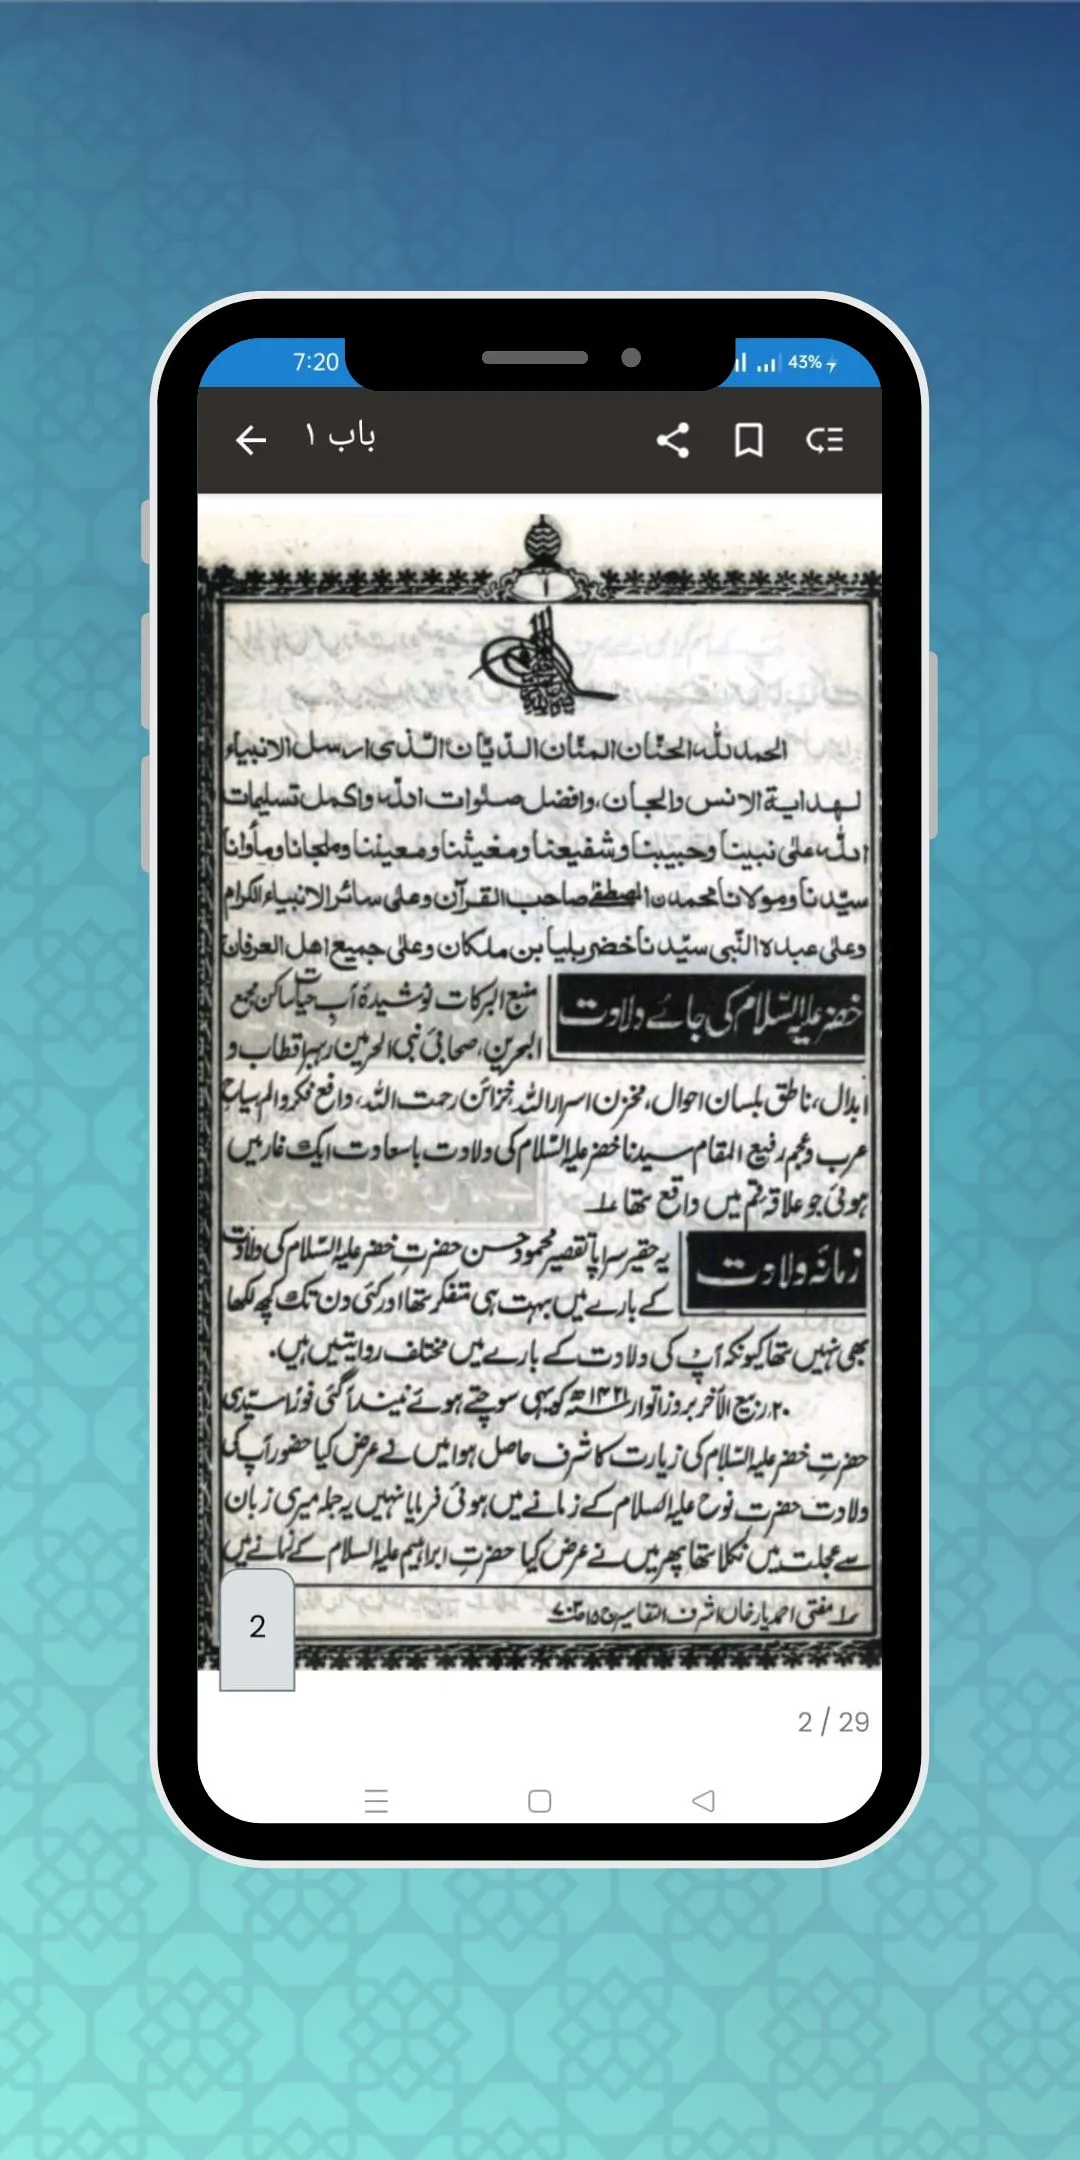 7:20
43%
باب ١
١
الحمد للہ الحنّان المنّان الدّیّان الّذی ارسل الانبیاء
لہدایۃ الانس والجان، وافضل صلٰوات اللہ واکمل تسلیمات
اللہ علی نبینا وحبیبنا وشفیعنا ومغیثنا ومعیننا وملجانا ومأوانا
سیّدنا ومولانا محمدن المصطفٰے صاحب القرآن وعلی سائر الانبیاء الکرام
وعلی عبدہ النّبی سیّدنا خضر بلیا بن ملکان وعلی جمیع اھل العرفان
خضر علیہ السّلام کی جائے ولادت
منبع البرکات نوشیدۂ آبِ حیات ساکن مجمع
البحرین، صحابیٔ نبی الحرمین رہبر اقطاب و
ابدال، ناطق بلسان احوال، مخزن اسرار اللہ خزائن رحمت اللہ، دافع فکر والم سیاح
عرب وعجم رفیع المقام سیدنا خضر علیہ السّلام کی ولادت باسعادت ایک غار میں
ہوئی جو علاقہ قم میں واقع تھا ۱ـ
زمانہ ولادت
یہ حقیر سراپا تقصیر محمود حسن حضرتِ خضر علیہ السّلام کی ولادت
کے بارے میں بہت ہی متفکر تھا اور کئی دن تک کچھ لکھا
بھی نہیں تھا کیونکہ آپ کی ولادت کے بارے میں مختلف روایتیں ہیں.
۲۰؍ ربیع الآخر بروز اتوار ۱۴۲۱ھ کو یہی سوچتے ہوئے نیند آگئی فوراً سیّدی
حضرتِ خضر علیہ السّلام کی زیارت کا شرف حاصل ہوا میں نے عرض کیا حضور آپ کی
ولادت حضرت نوح علیہ السلام کے زمانے میں ہوئی فرمایا نہیں یہ جملہ میری زبان
سے عجلت میں نکلا تھا پھر میں نے عرض کیا حضرتِ ابراہیم علیہ السلام کے زمانے میں
۱ـ مفتی احمد یار خاں اشرف التفاسیر ج ۱۵
2
2 / 29